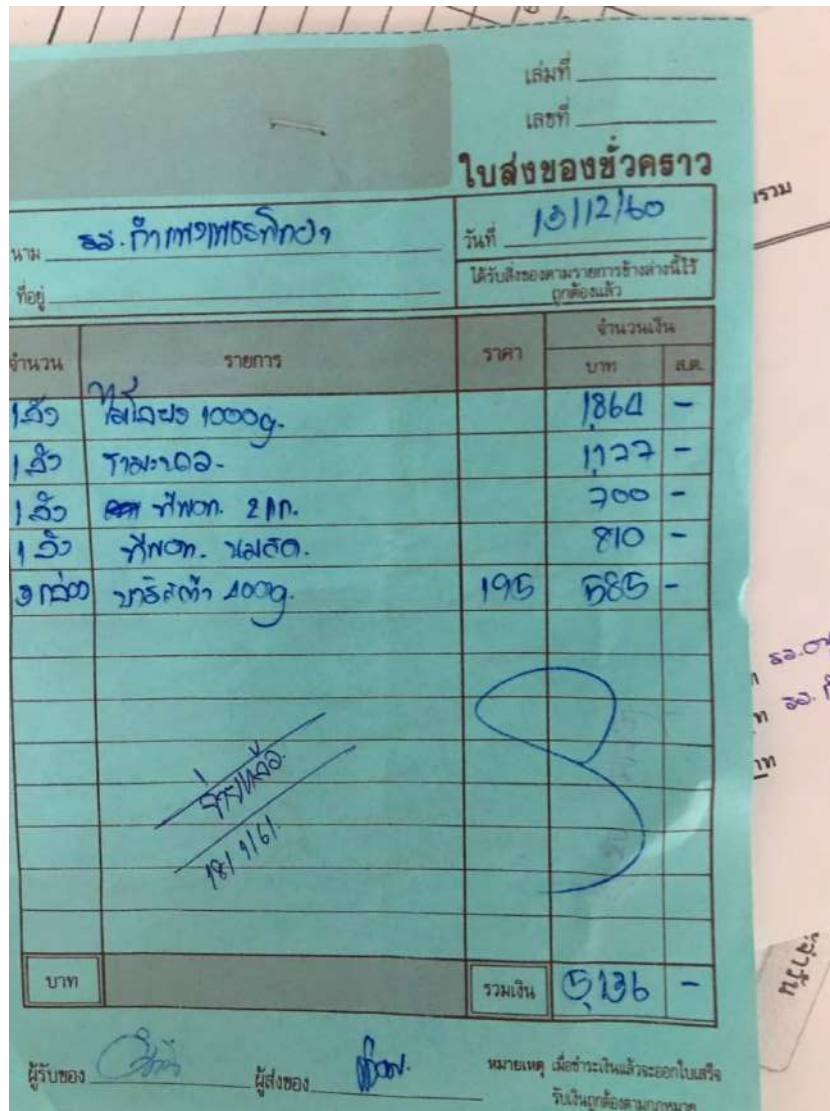 เล่มที่
เลขที่
ใบส่งของชั่วคราว
นาม รร. กำแพงเพชรพิทยา
วันที่ 13/12/60
ที่อยู่
ได้รับสิ่งของตามรายการข้างล่างนี้ไว้
ถูกต้องแล้ว
จำนวน รายการ ราคา จำนวนเงิน
บาท ส.ต.
1 ลัง ไมโลผง 1000g. 1864 -
1 ลัง 1177 -
1 ลัง ทีพอท. 2 กก. 700 -
1 ลัง ทีพอท. นมสด. 810 -
3 กล่อง บาริสต้า 400g. 195 585 -
จ่ายแล้ว
18/1/61
บาท รวมเงิน 5,136 -
ผู้รับของ ผู้ส่งของ หมายเหตุ เมื่อชำระเงินแล้วจะออกใบเสร็จ
รับเงินถูกต้องตามกฎหมาย